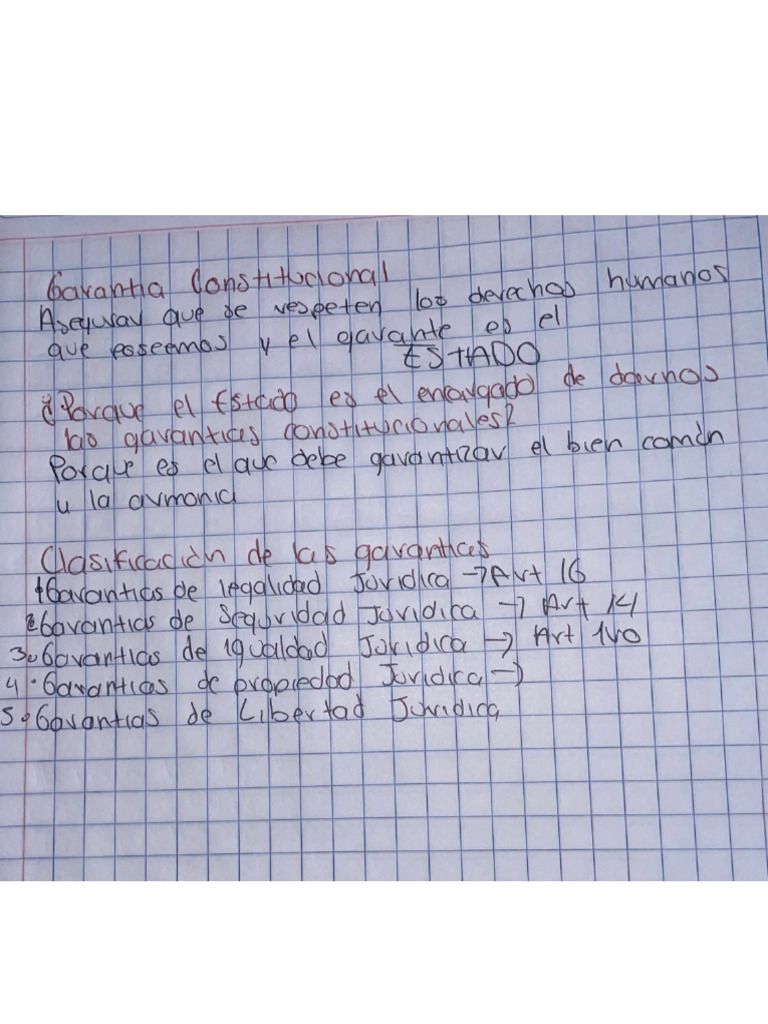 Garantia Constitucional
Asegurar que se respeten los derechos humanos
que poseemos y el garante es el
ESTADO
¿Porque el Estado es el encargado de darnos
las garantias constitucionales?
Porque es el que debe garantizar el bien común
y la armonia
Clasificación de las garantias
1 Garantias de legalidad Juridica → Art 16
2 Garantias de Seguridad Juridica → Art 14
3. Garantias de igualdad Juridica → Art 1ro
4. Garantias de propiedad Juridica →
5. Garantias de Libertad Juridica